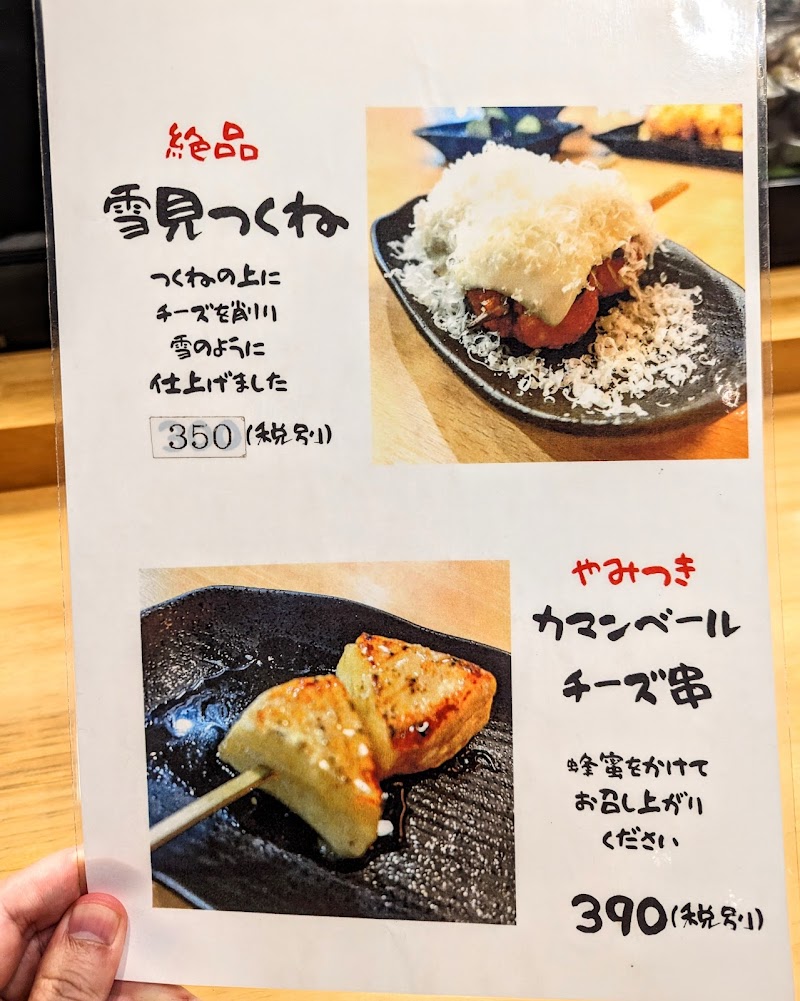 絶品
雪見つくね
つくねの上に
チーズを削り
雪のように
仕上げました
350(税別)
やみつき
カマンベール
チーズ串
蜂蜜をかけて
お召し上がり
ください
390(税別)